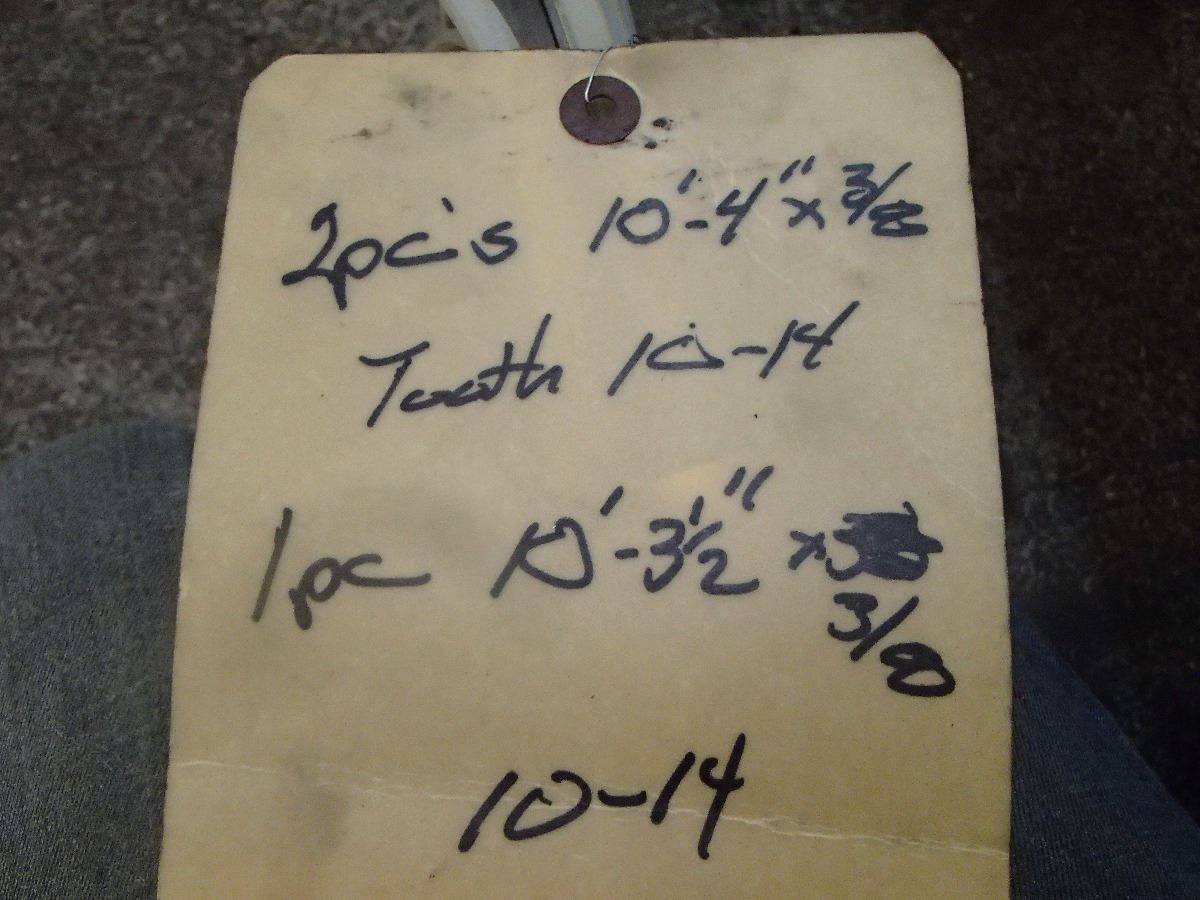 2pc's 10'-4" x 3/8
Tooth 10-14
1pc 10'-3 1/2" x
3/8
10-14